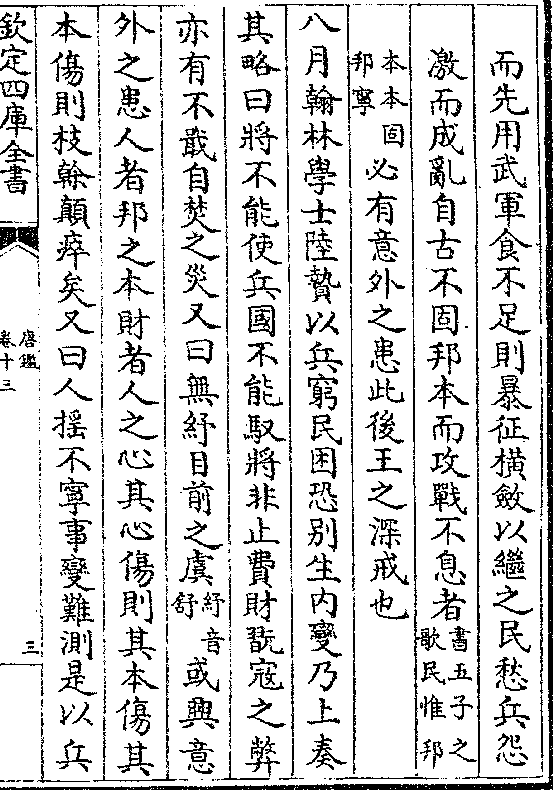 而先用武軍食不足則暴征橫斂以繼之民愁兵怨
激而成亂自古不固邦本而攻戰不息者書五子之歌民惟邦
本本固邦寧必有意外之患此後王之深戒也
八月翰林學士陸贄以兵窮民困恐别生内變乃上奏
其略曰將不能使兵國不能馭將非止費財翫寇之弊
亦有不戢自焚之災又曰無紓目前之虞紓音舒或興意
外之患人者邦之本財者人之心其心傷則其本傷其
本傷則枝榦顛瘁矣又曰人揺不寧事變難測是以兵
欽定四庫全書
唐鑑
卷十三
三